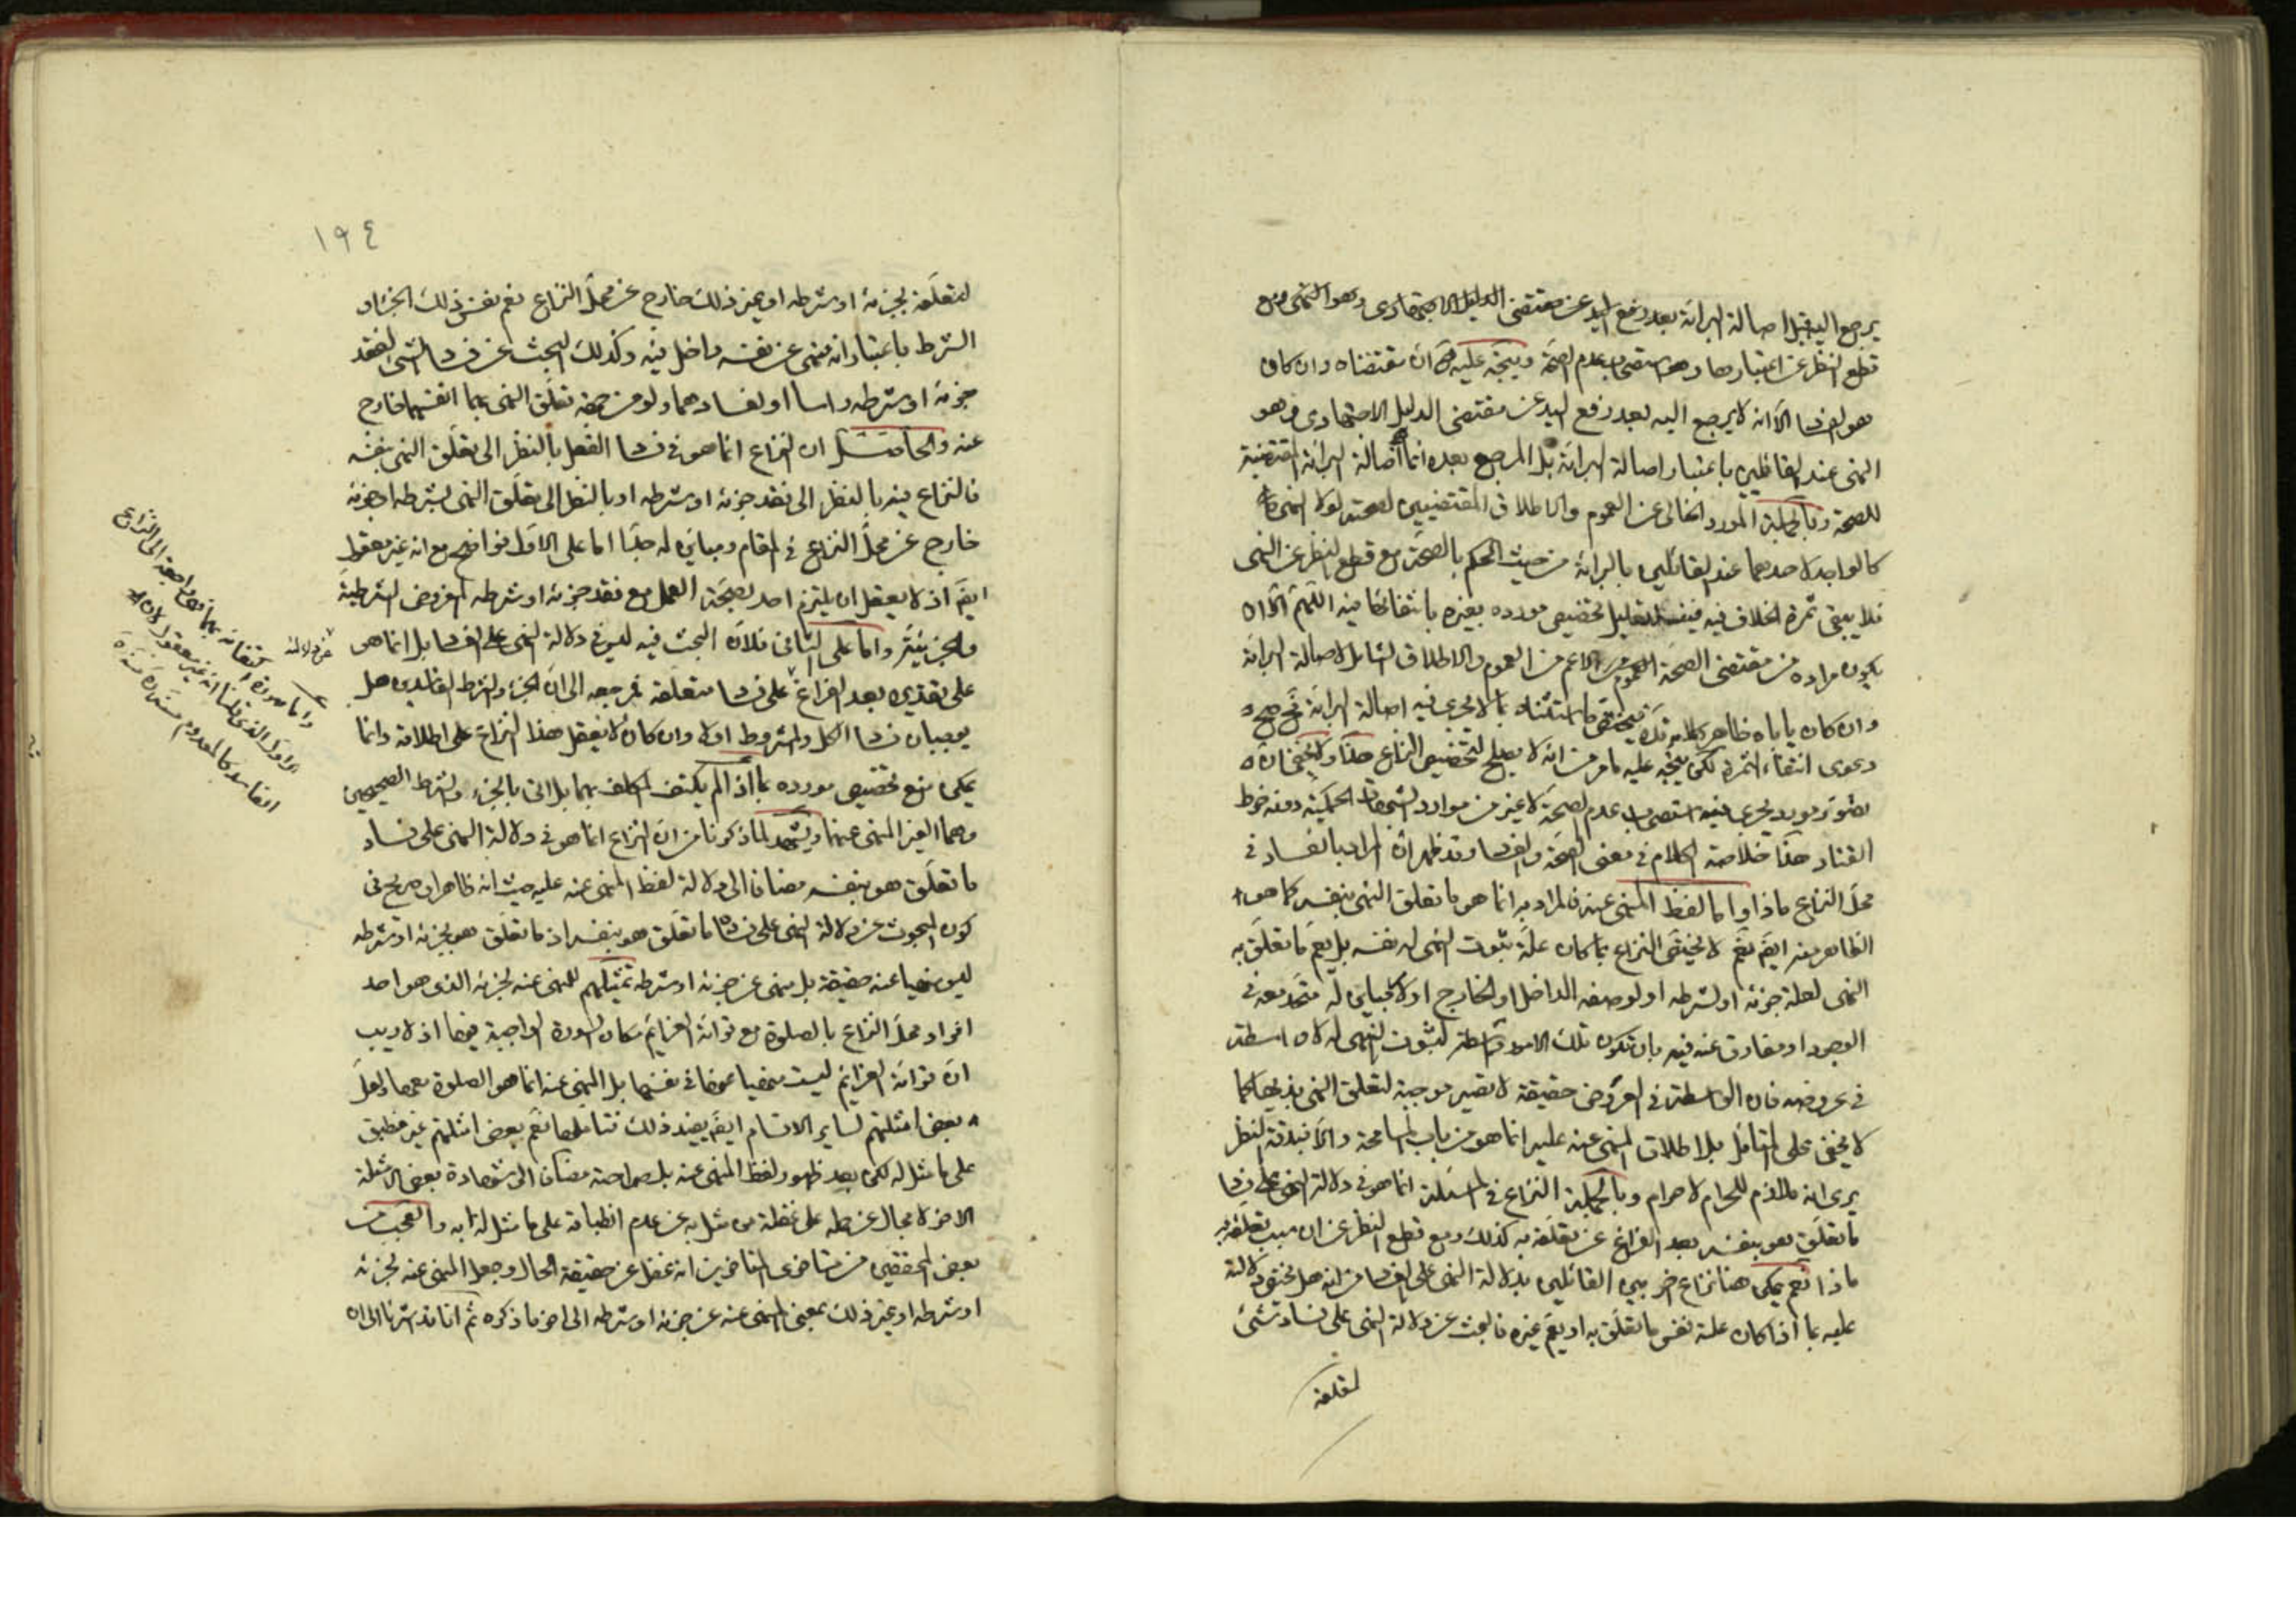 يرجع اليه قبل اصالة البرائة بعد رفع اليد عن مقتضى الدليل الاجتهادى وهو النهى مع
قطع النظر عن اعتبارها وهو استصحاب عدم الصحة ويتجه عليه ان مقتضاه وان كان
هو الفساد الا انه لا يرجع اليه بعد رفع اليد عن مقتضى الدليل الاجتهادى وهو
النهى عند القائلين باعتبار اصالة البرائة بل المرجع بعده انما اصالة البرائة المقتضية
للصحة وبالجملة المورد الخالى عن العموم والاطلاق المقتضيين لصحته لولا النهى
كالواجد لاحدهما عند القائلين بالبرائة من حيث الحكم بالصحة مع قطع النظر عن النهى
فلا يبقى ثمرة الخلاف فيه فيفسد تعليل تخصيص مورده بغيره بانتفائها فيه اللهم الا ان
يكون مراده من مقتضى الصحة الاعم من العموم والاطلاق الشامل لاصالة البرائة
وان كان ياباه ظاهر كلامه فيختص ما استثناه بما لا يجرى فيه اصالة البرائة فح صح
دعوى انتفاء الثمرة لكن يتجه عليه ما مر من انه لا يصلح لتخصيص النزاع هذا ولا يخفى ان
تصوير مورد يجرى فيه استصحاب عدم الصحة كغيره من موارد الحكمية دونه خرط
القتاد هذا خلاصة الكلام فى معنى الصحة والفساد وقد ظهر ان المراد بالفساد فى
محل النزاع ماذا واما لفظ المنهى عنه فالمراد به انما هو ما تعلق النهى بنفسه كما هو
الظاهر منه ايضا نعم لا يختص النزاع بما كان علة ثبوت النهى له نفسه بل يعم ما تعلق به
النهى لعلة جزئه او لشرطه او لوصفه الداخل او الخارج او لا مباين له متحد معه فى
الوجود او مفارق عنه فيه بان تكون تلك الامور واسطة لثبوت النهى له لا واسطة
فى عروضه فان الواسطة فى العروض حقيقة لا تصير موجبة لتعلق النهى بذيها كما
لا يخفى على المتامل بل اطلاق المنهى عنه عليه انما هو من باب المسامحة والا فبدقة النظر
يرى انه ملازم للحرام لا حرام وبالجملة النزاع فى المسئلة انما هو فى دلالة النهى على فساد
ما تعلق هو بنفسه بعد الفراغ عن تعلقه به كذلك ومع قطع النظر عن ان سبب تعلقه به
ماذا نعم يمكن هنا نزاع اخر بين القائلين بدلالة النهى على الفساد من انه هل يختص دلالته
عليه بما اذا كان علة نفس ما تعلق به او يعم غيره فالبحث عن دلالة النهى على فساد شئ
لتعلقه
١٩٤
لتعلقه بجزئه او شرطه او غير ذلك خارج عن محل النزاع نعم نفس ذلك الجزء او
الشرط باعتبار انه منهى عن نفسه داخل فيه وكذلك البحث عن فساد الشئ لفقد
جزئه او شرطه راسا او لفسادهما ولو من جهة تعلق النهى بهما انفسهما خارج
عنه والحاصل ان النزاع انما هو فى فساد الفعل بالنظر الى تعلق النهى بنفسه
فالنزاع فيه بالنظر الى فقد جزئه او شرطه او بالنظر الى تعلق النهى بشرطه او جزئه
خارج عن محل النزاع فى المقام ومباين له جدا اما على الاول فواضح مع انه غير معقول
ايضا اذ لا يعقل ان يلتزم احد بصحة العمل مع فقد جزئه او شرطه المفروض الشرطية
والجزئية واما على الثانى فلان البحث فيه ليس فى دلالة النهى على الفساد بل انما هو
على تقديره بعد الفراغ على فساد متعلقه فمرجعه الى ان الجزء والشرط الفاسدين هل
يوجبان فساد الكل والمشروط اولا وان كان لا يعقل هذا النزاع على اطلاقه وانما
يمكن مع تخصيص مورده بما اذا لم يكتف المكلف بهما بل اتى بالجزء والشرط الصحيحين
وهما الغير المنهى عنهما ويشهد لما ذكرنا من ان النزاع انما هو فى دلالة النهى على فساد
ما تعلق هو بنفسه مضافا الى دلالة لفظ المنهى عنه عليه حيث انه ظاهر ان صريح فى
كون المبحوث عن دلالة النهى على فساد ما تعلق هو بنفسه اذ ما تعلق هو بجزئه او شرطه
ليس منهيا عنه حقيقة بل منهى عن جزئه او شرطه تمثيلهم للمنهى عنه لجزئه الذى هو احد
افراد محل النزاع بالصلوة مع قرائة العزايم مكان السورة الواجبة فيها اذ لا ريب
ان قرائة العزايم ليست منهيا عنها فى نفسها بل المنهى عنه انما هو الصلوة معها ولعل
بعض امثلتهم لساير الاقسام ايضا يفيد ذلك فتاملها نعم بعض امثلتهم غير منطبق
على ما مثل له لكن بعد ظهور لفظ المنهى عنه بل صراحته مضافا الى شهادة بعض الامثلة
الاخر لا مجال عن حمله على غفلة من مثل به عن عدم انطباقه على ما مثل له به والعجب من
بعض المحققين من متاخرى المتاخرين انه غفل عن حقيقة الحال وجعل المنهى عنه لجزئه
او شرطه او غير ذلك بمعنى المنهى عنه عن جزئه او شرطه الى اخر ما ذكره ثم انا قد اشرنا الى ان
واما صورة اكتفائه بهما فهى راجعة الى النزاع
الاول الذى قلنا انه غير معقول لان
الفاسد كالمعدوم